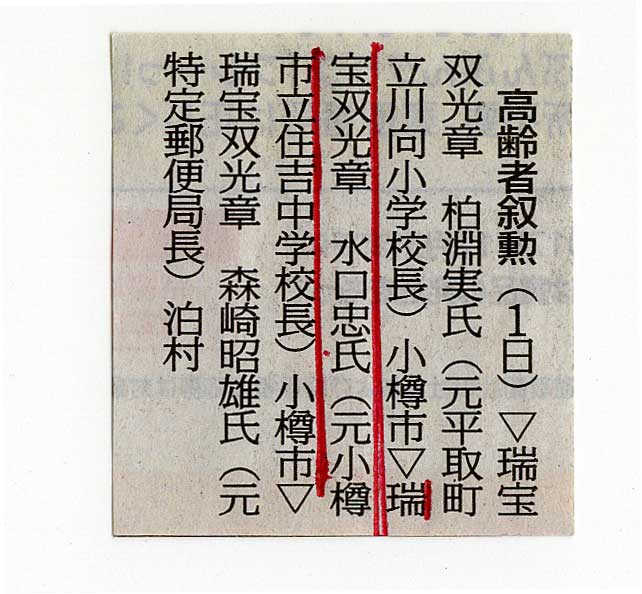 高齢者叙勲（1日）▽瑞宝
双光章　柏淵実氏（元平取町
立川向小学校長）小樽市▽瑞
宝双光章　水口忠氏（元小樽
市立住吉中学校長）小樽市▽
瑞宝双光章　森崎昭雄氏（元
特定郵便局長）泊村